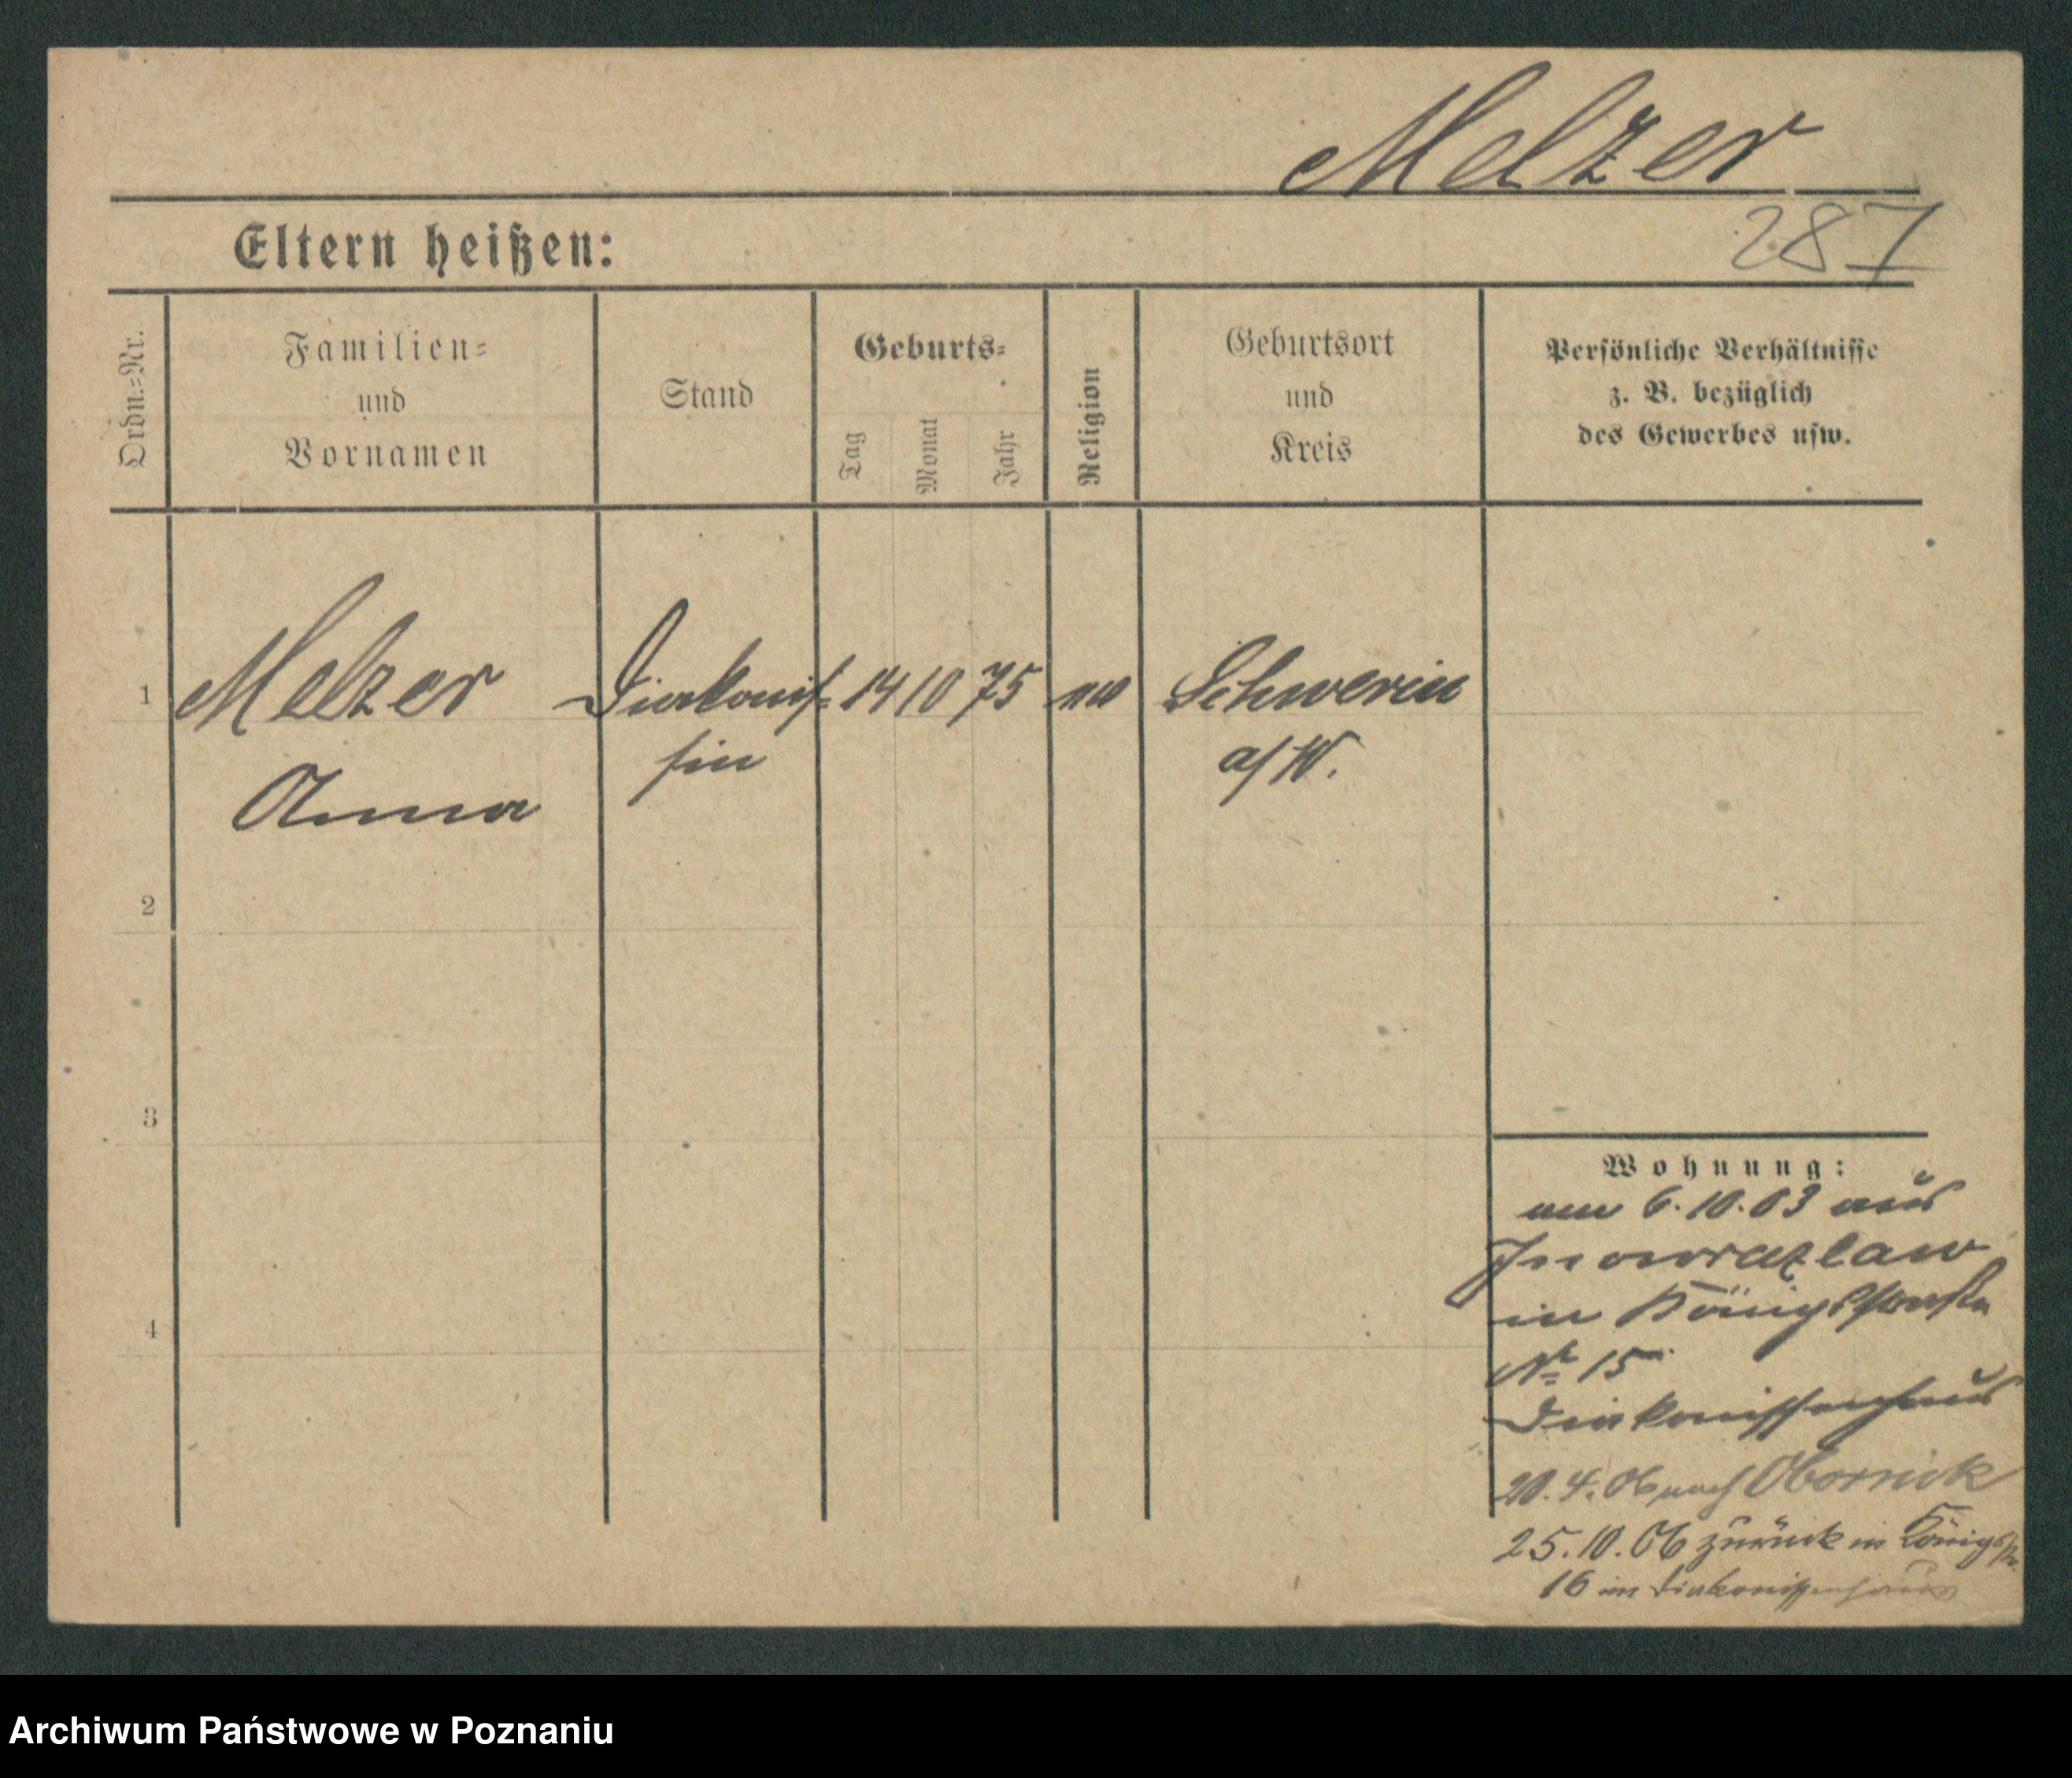 Melzer
Eltern heißen:
287
Ordn.=Nr.
Familien=
und
Vornamen
Stand
Geburts=
Tag
Monat
Jahr
Religion
Geburtsort
und
Kreis
Persönliche Verhältnisse
z. B. bezüglich
des Gewerbes usw.
1 Melzer Diakonis= 14 10 75 ev Schwerin
sin a/W.
Anna
2
3
4
Wohnung:
am 6.10.03 aus
Inowrazlaw
in Königsstraße
No 15
Diakonissenhaus
20.4.06 nach Obornik
25.10.06 zurück in Königstr.
16 im Diakonissenhaus
Archiwum Państwowe w Poznaniu